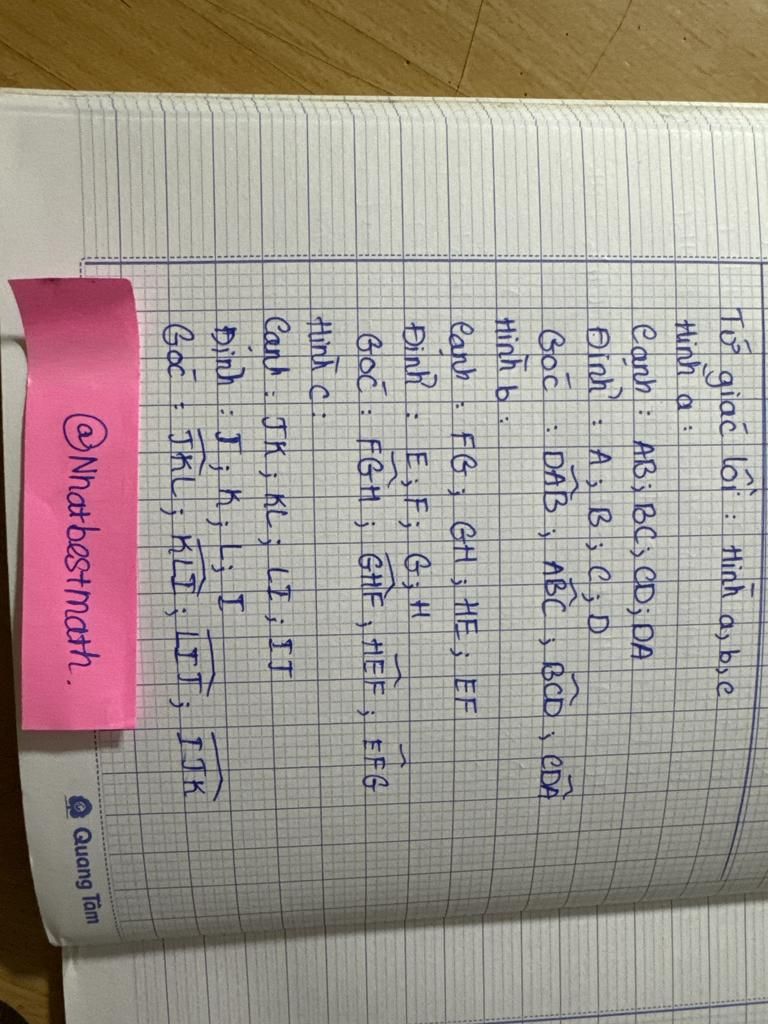 Tứ giác lồi : Hình a, b, c
Hình a :
Cạnh : AB; BC; CD; DA
Đỉnh : A ; B ; C ; D
Góc : DAB ; ABC ; BCD ; CDA
Hình b :
Cạnh : FG ; GH ; HE ; EF
Đỉnh : E ; F ; G ; H
Góc : FGH ; GHE , HEF ; EFG
Hình c :
Cạnh : JK ; KL ; LI ; IJ
Đỉnh : J ; K ; L ; I
Góc : JKL ; KLI ; LIJ ; IJK
@Nhatbestmath.
Quang Tâm